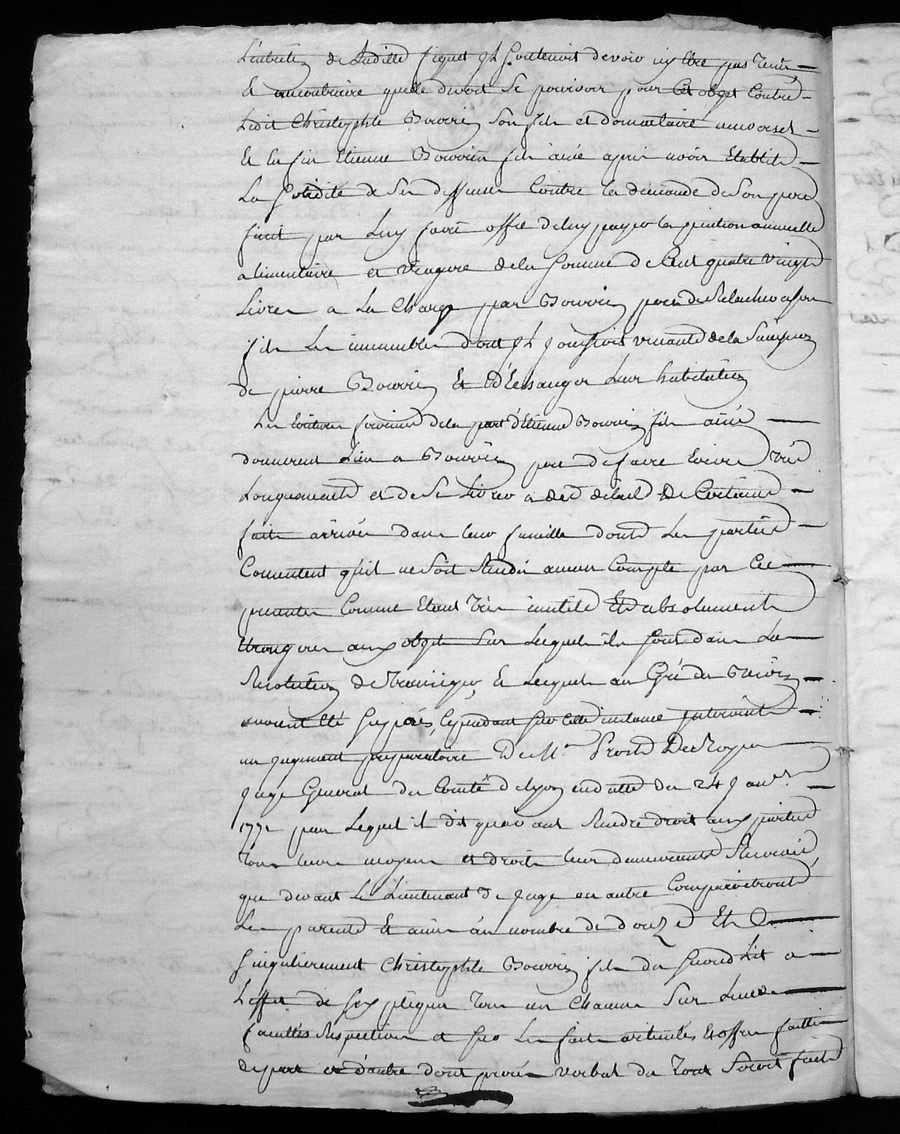 de Laditte piquet il Soutenoit devoir
Et aucontraire quelle devoit Se pourvoir pour Cet objet Contre
Ledit Christophle Bouvrie Son fils et donnataire universel
Et Enfin Etienne Bouvrie fils ainé aprés avoir Etablit
La Solidité de Ses deffenses Contre la demande de Son pere
finit par Luy faire offre de luy payer la pention annuelle
alimentaire et viagere de la Somme de Cent quatre vingt
Livres a La Charge par Bouvrie pere de Relacher a Son
fils Les immeubles dont il Jouissoit venant de la
de pierre Bouvrie Et d'Echanger Leur habitation
Les Ecritures fournies de la part d'Etienne Bouvrie fils ainé
donnerent Lieu a Bouvrie pere de faire Ecrire tres
Longuement et de Se Livrer a des detail de Certains
faits arrivés dans leur famille dont Les parties
Consentent quil ne Soit Rendu aucun Compte par Ces
presentes Comme Etant tres inutile Et absolument
Etrangers aux objets Sur Lesquels ils Sont dans La
Resolution de transiger, Et Lesquels au Gré de Bouvrie
auroient Eté Cependant Sur Cette instance intervint
un jugement preparatoire De Mr Prost De Royer
Juge General du Comté de Lyon en datte du 24 Janer
1772 par Lequel il dit quavant Rendre droit aux parties
tous leurs moyens et droits leur demeurants Reservés
que devant Le Lieutenant de Juge ou autre Comparoitront
Les parents Et amis au nombre de douze Et
Singulierement Christophle Bouvrie fils du Second Lit a
L'effet de Sexpliquer tous un Chacun Sur Leurs
facultés Respectives et Sur Les faits articulés Et offres faittes
de part et d'autre dont procés verbal du tout Seroit fait